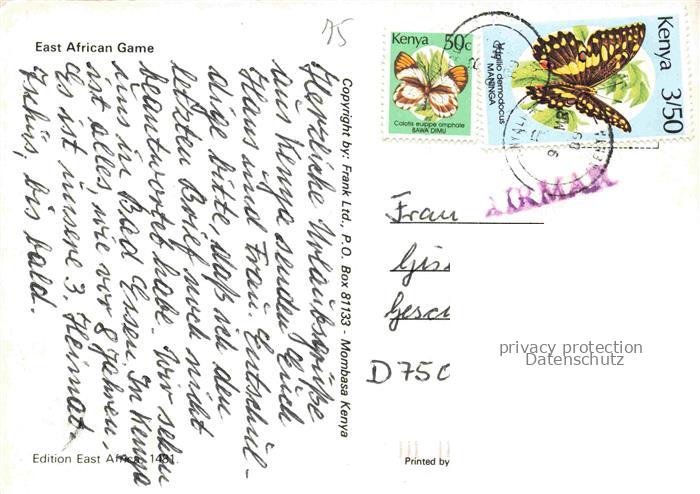 East African Game
75
Herzliche Urlaubsgrüße
aus Kenya senden Euch
Hans und Frau. Entschul-
dige bitte, daß ich den
letzten Brief noch nicht
beantwortet habe. Wir sehen
uns in Bad Essen. In Kenya
ist alles, wie vor 8 Jahren,
es ist unsere 3. Heimat.
Tschüs, bis bald.
Edition East Africa 1481.
Copyright by: Frank Ltd., P.O. Box 81133 - Mombasa Kenya
Kenya 50c
Colotis euippe omphale
BAWA DIMU
Kenya 3/50
Papilio demodocus
MANINGA
AIRMAIL
Frau
Gis
Gesc
D 750
privacy protection
Datenschutz
Printed by